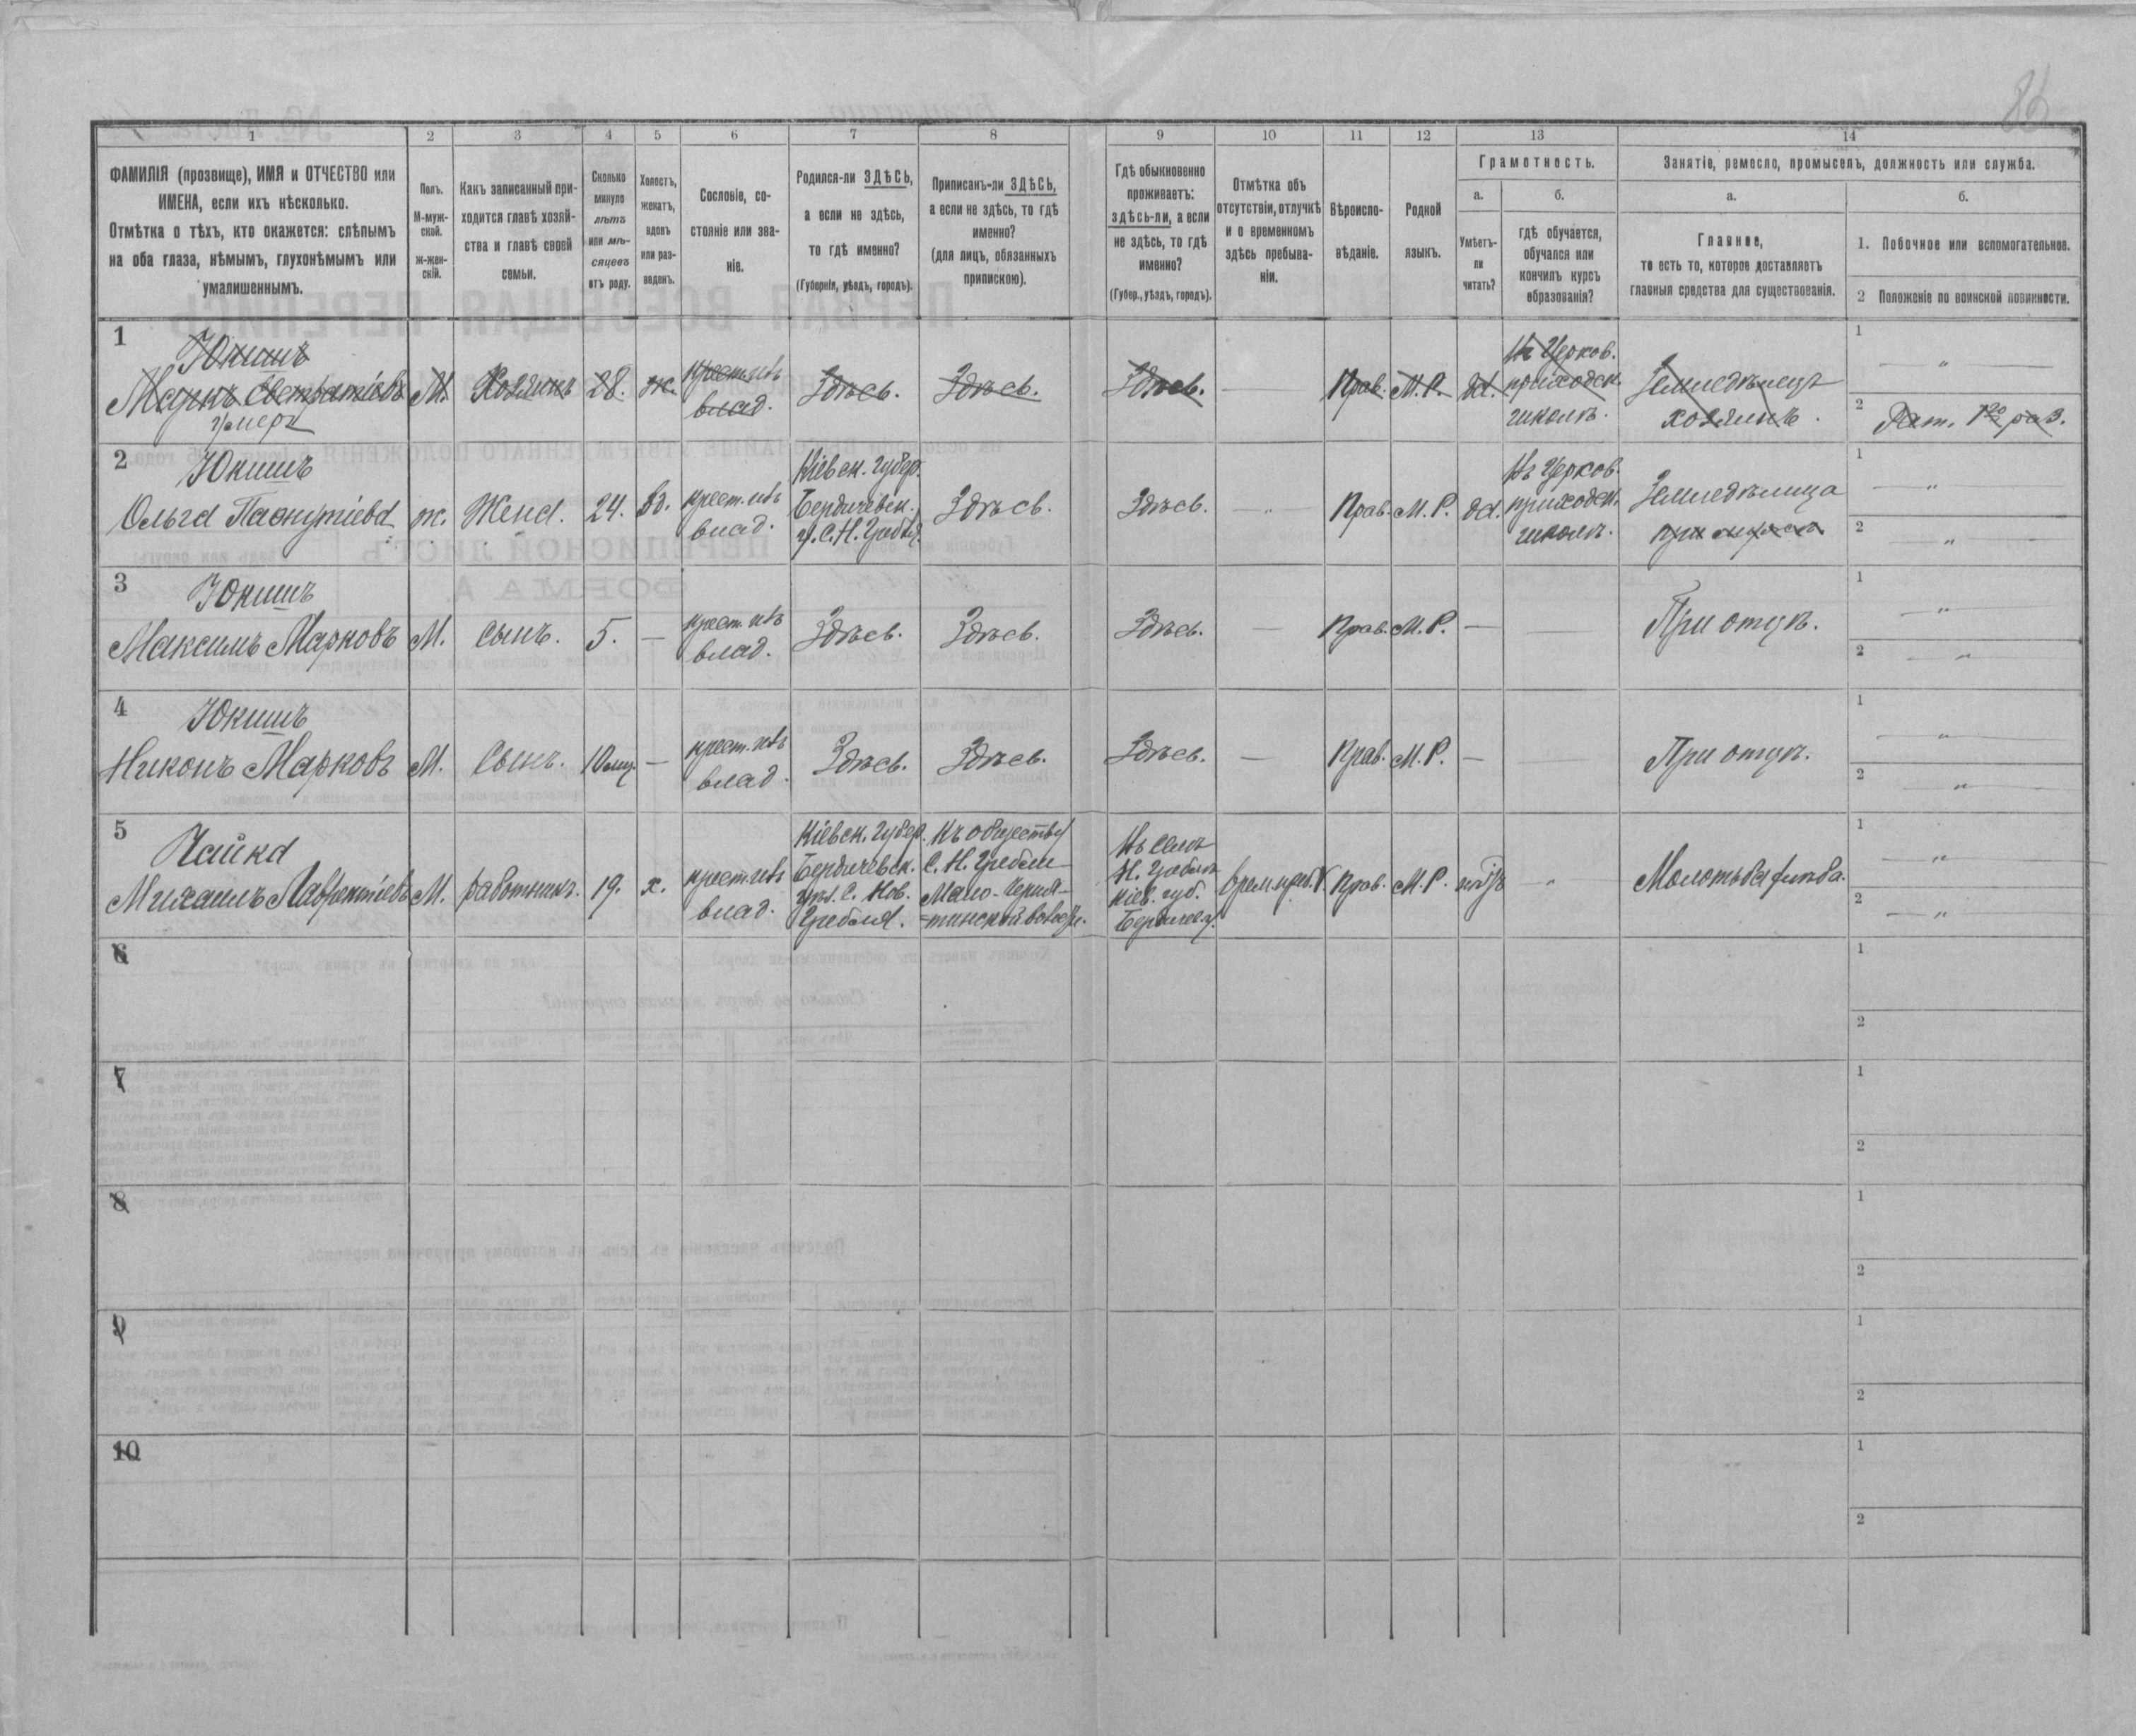 86
1
2
3
4
5
6
7
8
9
10
11
12
13
14
ФАМИЛІЯ (прозвище), ИМЯ и ОТЧЕСТВО или
ИМЕНА, если ихъ нѣсколько.
Отмѣтка о тѣхъ, кто окажется: слѣпымъ
на оба глаза, нѣмымъ, глухонѣмымъ или
умалишеннымъ.
Полъ.
М-муж-
ской.
ж-жен-
скій.
Какъ записанный при-
ходится главѣ хозяй-
ства и главѣ своей
семьи.
Сколько
минуло
лѣтъ
или мѣ-
сяцевъ
отъ роду.
Холостъ,
женатъ,
вдовъ
или раз-
веденъ.
Сословіе, со-
стояніе или зва-
ніе.
Родился-ли ЗДѢСЬ,
а если не здѣсь,
то гдѣ именно?
(Губернія, уѣздъ, городъ).
Приписанъ-ли ЗДѢСЬ,
а если не здѣсь, то гдѣ
именно?
(для лицъ, обязанныхъ
припискою).
Гдѣ обыкновенно
проживаетъ:
здѣсь-ли, а если
не здѣсь, то гдѣ
именно?
(Губер., уѣздъ, городъ).
Отмѣтка объ
отсутствіи, отлучкѣ
и о временномъ
здѣсь пребыва-
ніи.
Вѣроиспо-
вѣданіе.
Родной
языкъ.
Грамотность.
а.
Умѣетъ-
ли
читать?
б.
гдѣ обучается,
обучался или
кончилъ курсъ
образованія?
Занятіе, ремесло, промыселъ, должность или служба.
а.
Главное,
то есть то, которое доставляетъ
главныя средства для существованія.
б.
1. Побочное или вспомогательное.
2 Положеніе по воинской повинности.
1
Юкишъ
Маркъ Евстратіевъ
умеръ
М.
Хозяинъ
28.
ж.
крест. изъ
влад.
Здѣсь.
Здѣсь.
Здѣсь.
—
Прав.
М. Р.
да.
Въ Церков.
приходск.
школѣ.
Земледѣлецъ
хозяинъ.
1 — " —
2 Рат. 1го раз.
2
Юкишъ
Ольга Пафнутіева
ж.
Жена.
24.
вд.
крест. изъ
влад.
Кіевск. Губер.
Бердичевск.
у. С. Н. Гребля.
Здѣсь.
Здѣсь.
— " —
Прав.
М. Р.
да.
Въ Церков.
приходск.
школѣ.
Земледѣлица
при мужѣ
1 — " —
2 — " —
3
Юкишъ
Максимъ Марковъ
М.
Сынъ.
5.
—
крест. изъ
влад.
Здѣсь.
Здѣсь.
Здѣсь.
—
Прав.
М. Р.
—
При отцѣ.
1 — " —
2 — " —
4
Юкишъ
Никонъ Марковъ
М.
Сынъ.
10 мц.
—
крест. изъ
влад.
Здѣсь.
Здѣсь.
Здѣсь.
—
Прав.
М. Р.
—
При отцѣ.
1 — " —
2 — " —
5
Чайка
Михаилъ Лаврентіевъ
М.
работникъ.
19.
х.
крест. изъ
влад.
Кіевск. Губер.
Бердичевск.
уѣз. С. Нов.
Гребля.
Къ обществу
С. Н. Гребли
Мало-Черня-
тинской волости.
Въ Селѣ
Н. Греблѣ
Кіев. губ.
Бердичев. у.
врем. преб.
Прав.
М. Р.
нѣтъ
"
Молотьба хлѣба.
1 — " —
2 — " —
6
1
2
7
1
2
8
1
2
9
1
2
10
1
2